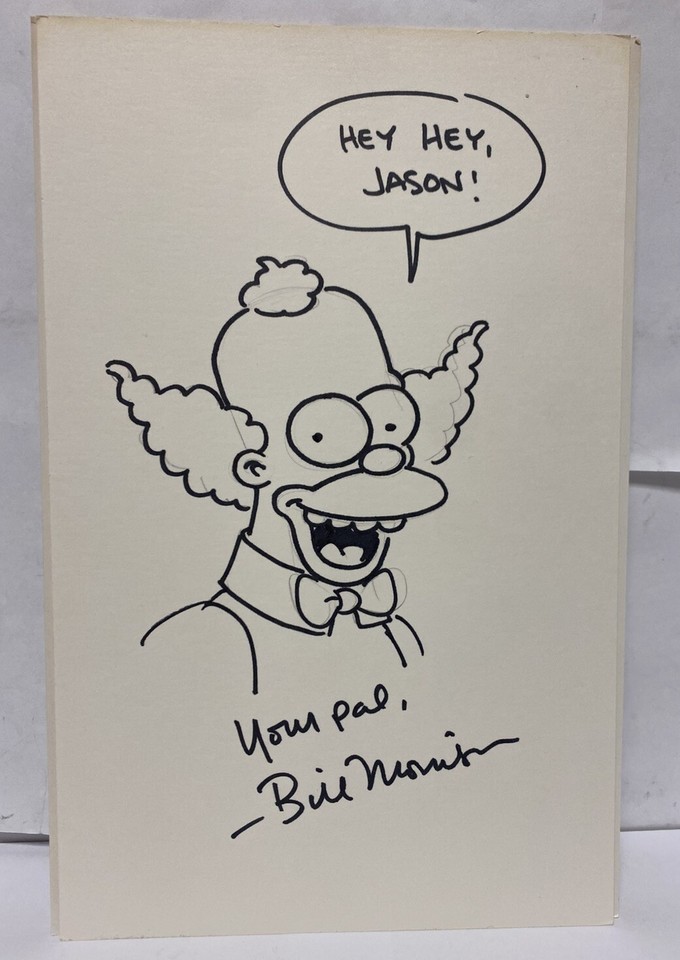 HEY HEY,
JASON!
Your pal,
–Bill Morrison